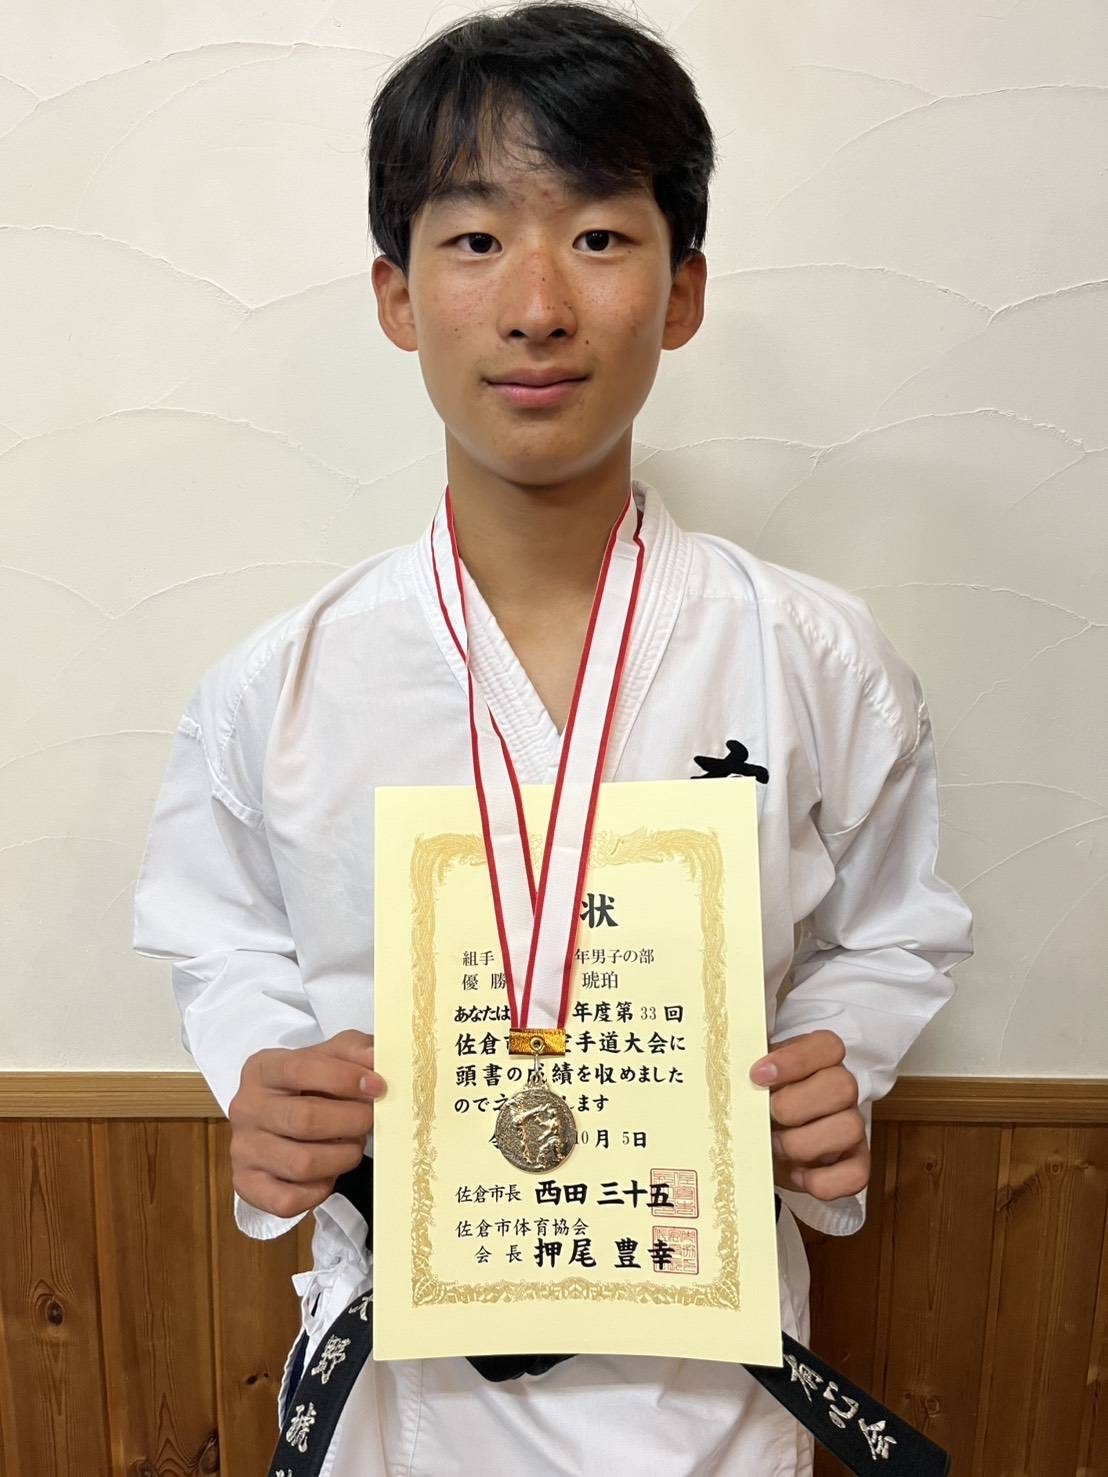 状
組手 年男子の部
優勝 琥珀
あなたは 年度第33回
佐倉市 空手道大会に
頭書の成績を収めました
ので します
10月5日
佐倉市長 西田三十五
佐倉市体育協会
会長 押尾豊幸
野琥
有心会